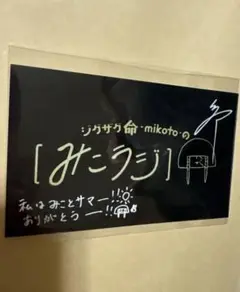 ジグザグ命-mikoto-の
[みこラジ]
私はみことサマー!!
ありがとう ー!!